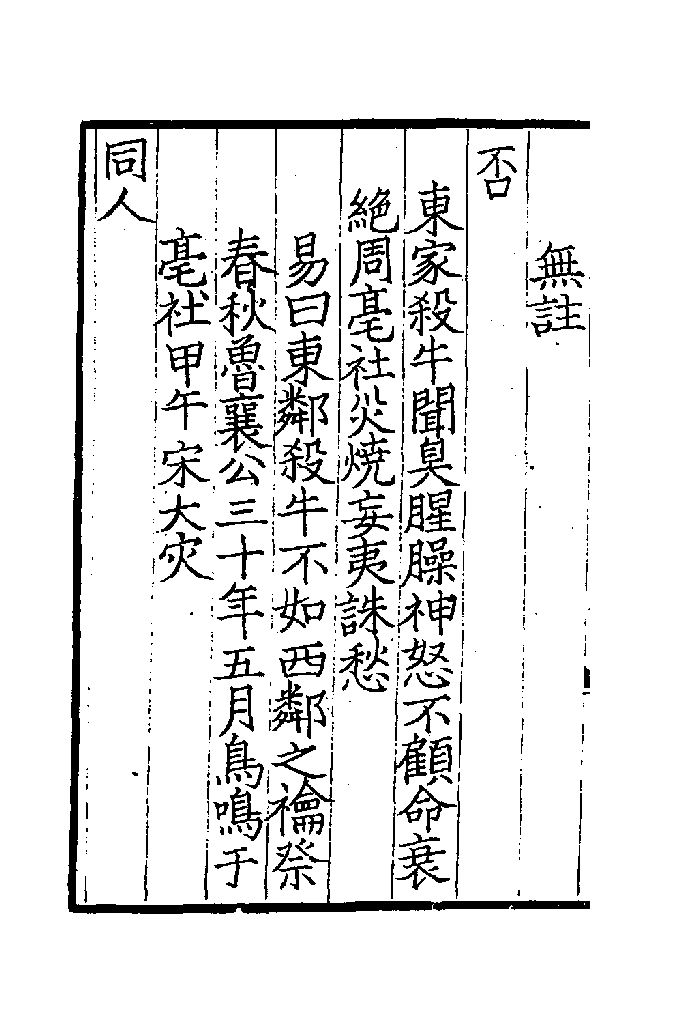 無註
否
東家殺牛聞臭腥臊神怒不顧命衰
絶周亳社災燒妄夷誅愁
易曰東鄰殺牛不如西鄰之禴祭
春秋魯襄公三十年五月鳥鳴于
亳社甲午宋大灾
同人